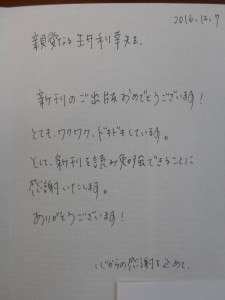 2016.12.7
親愛なる 生井利幸先生
新刊のご出版おめでとうございます!
とても、ワクワク、ドキドキしています。
そして、新刊を読み勉強できることに
感謝いたします。
ありがとうございます!
心からの感謝を込めて、